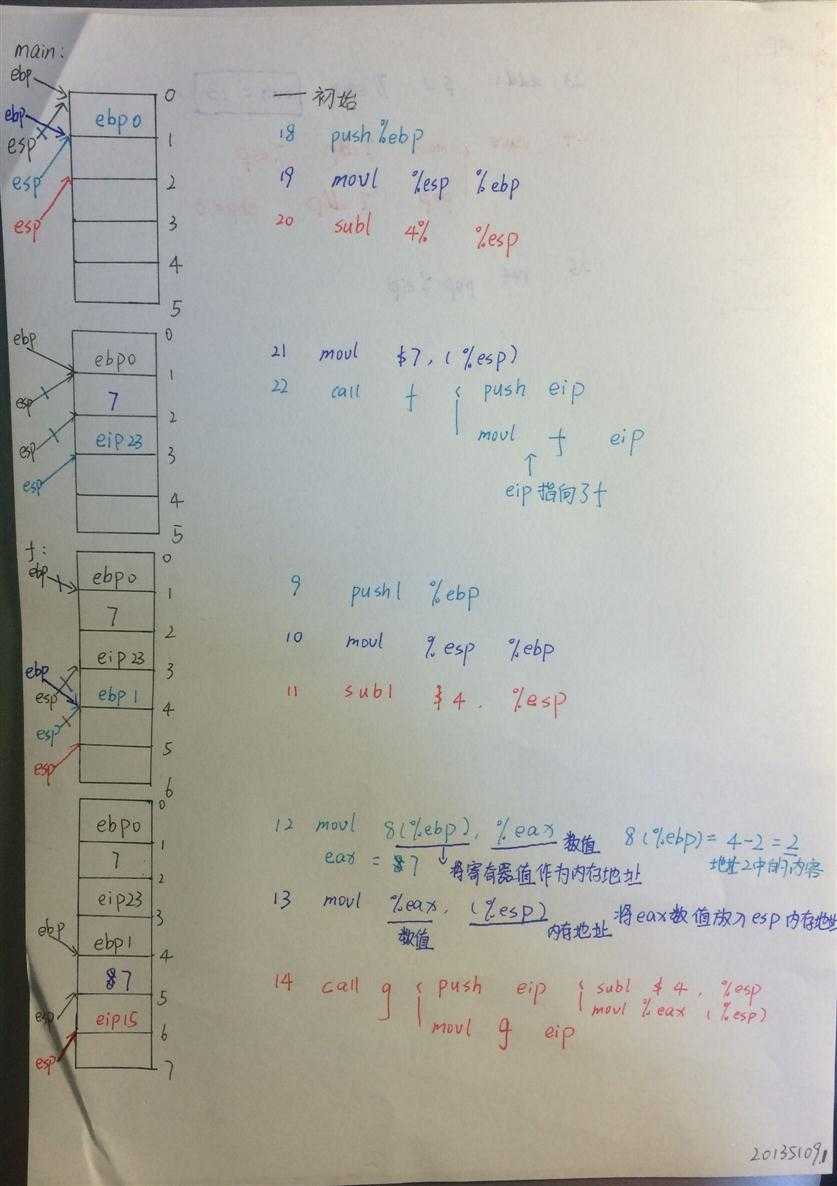 main:
ebp
0
初始
ebp
ebp0
esp
1
18 push %ebp
esp
2
19 movl %esp %ebp
esp
3
20 subl 4% %esp
4
5
0
ebp
ebp0
21 movl $7, (%esp)
1
esp
7
22 call f { push eip
2
esp
eip23
movl f eip
3
esp
eip指向了f
4
5
f:
0
ebp
ebp0
9 pushl %ebp
1
7
2
10 movl %esp %ebp
eip23
3
ebp
esp
ebp1
11 subl $4. %esp
4
esp
5
esp
6
0
ebp0
12 movl 8(%ebp), %eax 数值 8(%ebp)=4-2=2
1
eax = 7 将寄存器值作为内存地址 地址2中的内容
7
2
eip23
13 movl %eax, (%esp) 内存地址 将eax数值放入esp内存地址
3
数值
ebp
ebp1
4
7
14 call g { push eip { subl $4, %esp
5
movl %eax, (%esp)
esp
eip15
movl g eip
6
esp
7
20135109